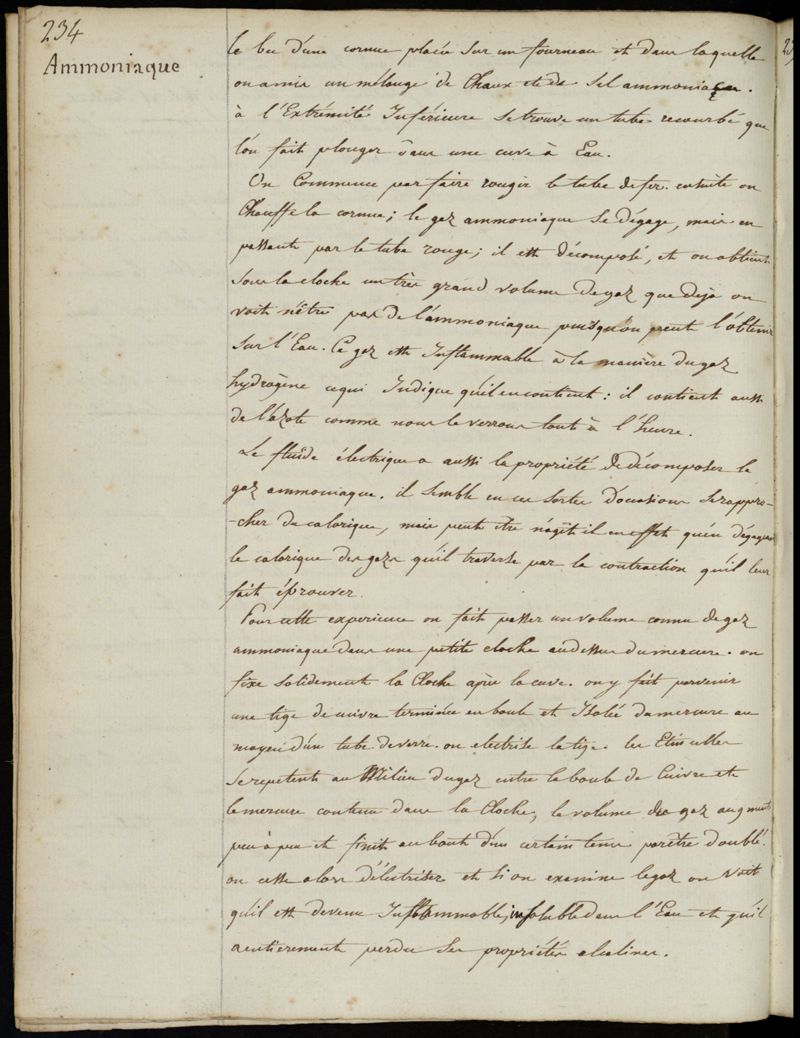 234
Ammoniaque
le bec d'une cornue placée sur un fourneau et dans laquelle
on a mis un mélange de Chaux et de Sel ammoniaque.
à l'Extrémité Inférieure se trouve un tube recourbé que
l'on fait plonger dans une cuve à Eau.
On Commence par faire rougir le tube de fer. ensuite on
Chauffe la cornue; le gaz ammoniaque se dégage, mais en
passant par le tube rouge; il est décomposé, et on obtient
sous la cloche un très grand volume de gaz que deja on
voit n'être pas de l'ammoniaque puisqu'on peut l'obtenir
sur l'Eau. Ce gaz est Inflammable à la manière du gaz
hydrogène ce qui Indique qu'il en contient: il contient aussi
de l'azote comme nous le verrons tout à l'heure.
Le fluide électrique a aussi la propriété de décomposer le
gaz ammoniaque. il semble en ces sortes d'occasions se rappro-
-cher du calorique, mais peut être n'agit il en effet qu'en dégageant
le calorique des gazs qu'il traverse par la contraction qu'il leur
fait éprouver.
Pour cette experience on fait passer un volume connu de gaz
ammoniaque dans une petite cloche au dessus du mercure. on
fixe solidement la Cloche après la cuve. on y fait parvenir
une tige de cuivre terminée en boule et Isolée du mercure au
moyen d'un tube de verre. on electrise la tige. les Etincelles
se repetent au Milieu du gaz entre la boule de Cuivre et
le mercure contenu dans la Cloche, le volume du gaz augmente
peu à peu et finit au bout d'un certain tems par être doublé.
on cesse alors d'électriser et si on examine le gaz on voit
qu'il est devenu Inflammable, insoluble dans l'Eau et qu'il
a entierement perdu ses propriétés alcalines.